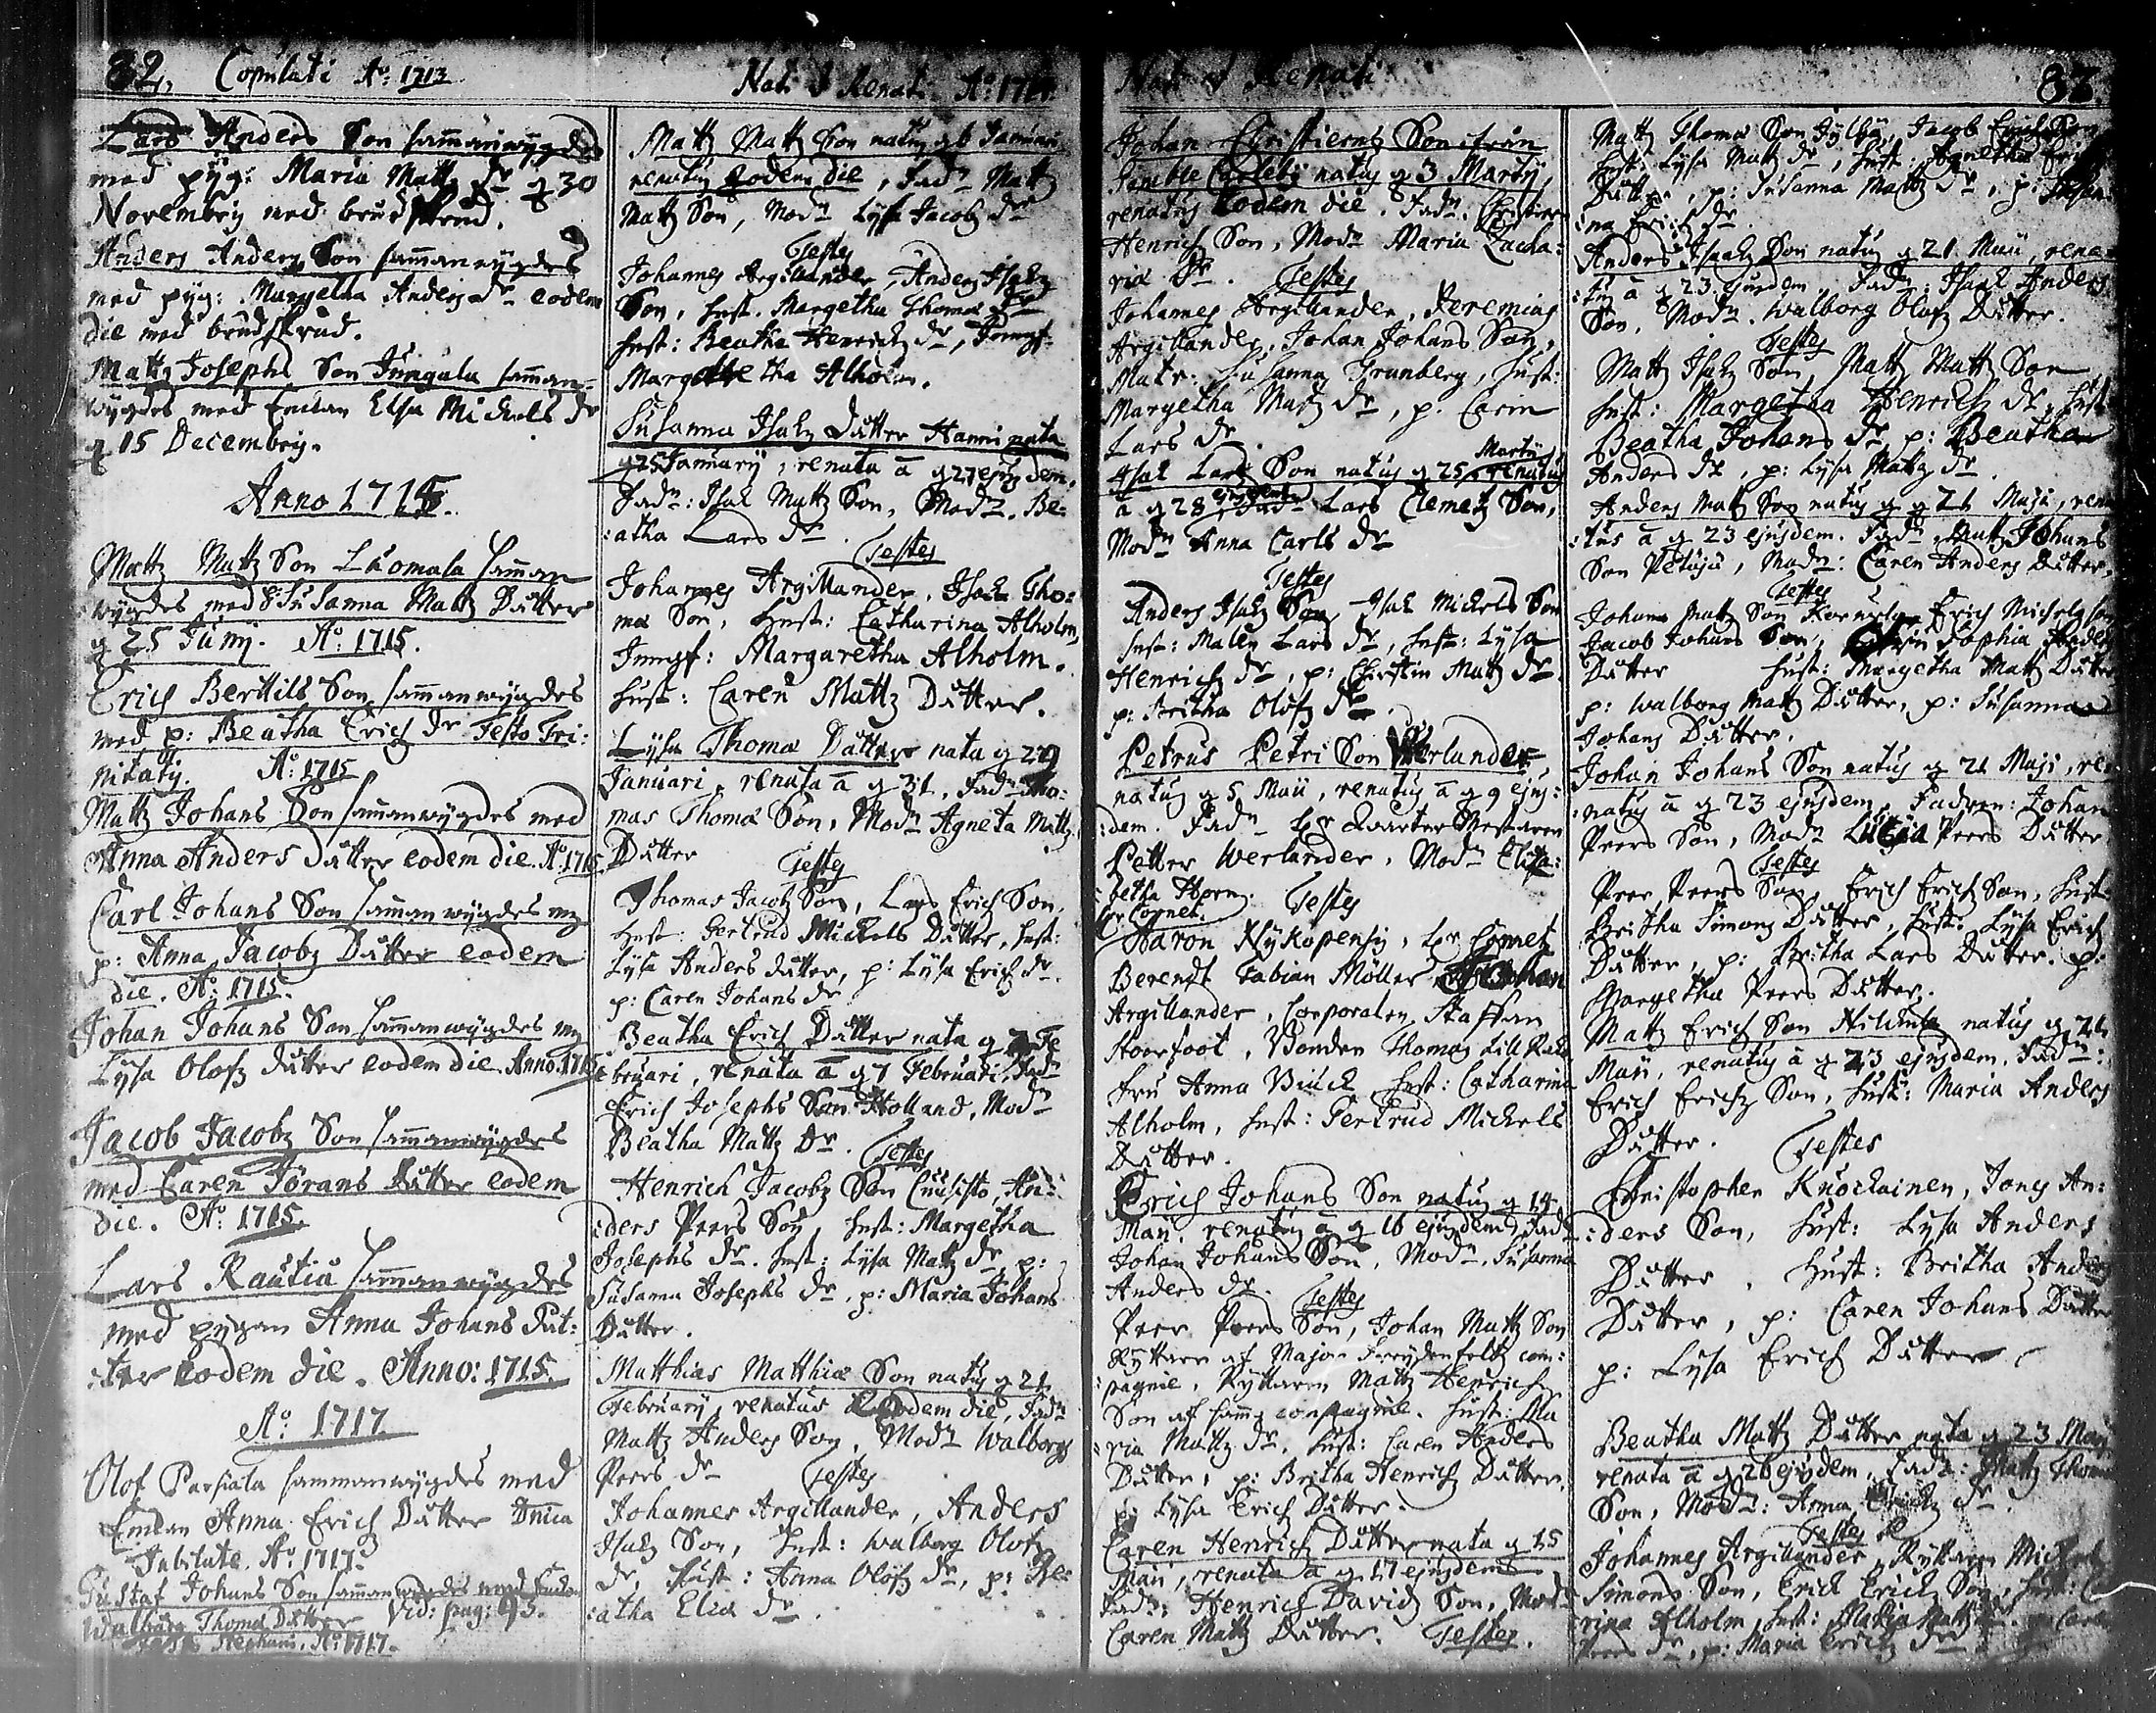 82. Copulati Ao: 1713
Lars Anders Son sammanwygdes
med pyg: Maria Mattz dr g 30
Novembrij med brudskrud.
Anders Anders Son sammanwygdes
med pyg: Margetha Anders dr eodem
die med brudskrud.
Mattz Josephs Son Jungala samman-
wygdes med Enckan Elsa Mickels dr
g 15 Decembrij.
Anno 1715.
Mattz Mattz Son Luomala samman
wygdes med Susanna Mattz Dutter
g 25 Junij. Ao: 1715.
Erich Bertils Son sammanwygdes
med p: Beatha Erich dr Festo Tri:
nitatij. Ao: 1715
Mattz Johans Son sammanwygdes med
Anna Anders dutter eodem die. Ao. 1715.
Carl Johans Son sammanwygdes mz
p: Anna Jacobz Dutter eodem
die. Ao: 1715.
Johan Johans Son sammanwygdes mz
Lysa Olofz dutter eodem die. Anno. 1715
Jacob Jacobz Son sammanwygdes
med Caren Jörans Dutter eodem
die. Ao: 1715.
Lars Rautia sammanwygdes
med pygan Anna Johans Dut:
:ter eodem die. Anno: 1715.
Ao. 1717
Olof Parsiala sammanwygdes med
Enckan Anna Erich Dutter Dnica
Jubilate. Ao. 1717.
Gustaf Johans Son sammanwygdes med Enckan
Walborg Thomæ Dutter Vid: pag: 95.
Stephani. Ao: 1717.
Nati & Renati. Ao: 1715.
Mattz Mattz Son natus g 6 Januari
renatus eodem die, Fadn Mattz
Mattz Son, Modn Lysa Jacobz dr
Testes
Johannes Argillander, Anders Isakz
Son, Hust. Margetha Thomæ dr
Hust: Beatha Henrichz dr, Jungf.
Margetha Alholm.
Susanna Isakz Dutter Hanni nata
g 25 January, renata a g 27 ejusdem.
Fadn: Isak Mattz Son, Modn. Be:
:atha Lars dr.
Testes
Johannes Argillander, Isack Tho:
mæ Son, Hust: Catharina Alholm,
Jungf: Margaretha Alholm.
Hust: Caren Mattz Dutter.
Lysa Thomæ Dutter nata g 29
Januari, renata a g 31, Fadn Tho:
mas Thomæ Son, Modn Agneta Mattz
Dutter
Testes
Thomas Jacobz Son, Lars Erich Son.
Hust: Gertrud Mickels Dutter, Hust:
Lysa Anders dutter, p: Lysa Erich dr.
p: Caren Johans dr
Beatha Erich Dutter nata g 7 Fe
bruari, renata a g 7 Februari, Fadn
Erich Josephs Son Holland, Modn
Beatha Mattz Dr. Testes
Henrich Jacobz Son Cuusisto, An:
:ders Peers Son, Hust: Margetha
Josephs dr. Hust: Lysa Mattz dr, p:
Susanna Josephs dr, p: Maria Johans
Dutter.
Matthias Matthiæ Son natus g 21
February, renatus eodem die, Fadn
Mattz Anders Son, Modn Walborg
Peers dr Testes
Johannes Argillander, Anders
Isakz Son, Hust: Walborg Olofz
dr, Hust: Anna Olofz dr, p: Be:
:atha Eliæ dr.
Nati & Renati
Johan Christierns Son från
Gamble Carleby natus g 3 Martij,
renatus eodem die. Fadn. Christiern
Henrich Son, Modn Maria Zacha:
riæ Dr. Testes
Johannes Argillander, Jeremias
Argillander, Johan Johans Son,
Matr: Susanna Grunberg, Hust:
Margetha Mattz dr, p. Carin
Lars dr.
Isak Lars Son natus g 25 Martij renatus
a g 28 ejusdem, Fadn Lars Clemetz Son,
Modn Anna Carls dr
Testes
Anders Isakz Son, Isak Mickels Son
Hust: Malin Lars dr, Hust: Lysa
Henrichz dr, p: Chirstin Mattz dr
p: Britha Olofz dr.
Petrus Petri Son Werlander
natus g 5 Maii, renatus a g 9 ejus:
:dem. Fadn Hr Quarter Mestaren
Petter Werlander, Modn Eliza:
betha Horn. Testes
Hr Cornet.
Aaron Nykopensij, Hr Cornet
Berendt Fabian Möller Johan
Argillander, Corporalen Staffan
Stoorfoot, Bonden Thomas Lill
Fru Anna Biuck Hust: Catharina
Alholm, Hust: Gertrud Mickels
Dutter.
Erich Johans Son natus g 14
Maii, renatus a g 16 ejusdem, Fadn
Johan Johans Son, Modn. Susanna
Anders dr. Testes
Peer Peers Son, Johan Mattz Son
Ryttare af Major Freydenfeltz com:
pagnie, Ryttaren Mattz Henrichz
Son af samma compagnie. Hust: Ma
ria Mattz dr, Hust: Caren Anders
Dutter, p: Britha Henrich Dutter.
p: Lysa Erich Dutter.
Caren Henrich Dutter nata g 15
Maii, renata a g 17 ejusdem
Fadn: Henrich Davidz Son, Modn
Caren Mattz Dutter. Testes.
83.
Mattz Thomæ Son Jylhä, Jacob
Hust: Lysa Mattz dr, Hust: Agnetha Erich
Dutter, p: Susanna Mattz dr, p:
:na Erich dr.
Anders Isaakz Son natus g 21 Maii, rena
:tus a g 23 ejusdem. Fadn: Isaak Anders
Son, Modn. Walborg Olofz Dutter.
Testes
Mattz Isakz Son, Mattz Mattz Son
Hust: Margetha Henrichz dr, Hust
Beatha Johans dr, p: Beatha
Anders dr, p: Lysa Mattz dr
Anders Mattz Son natus g 21 Maji, rena
:tus a g 23 ejusdem. Fadn, Mattz Johans
Son Petäjä, Modn: Caren Anders Dutter,
Testes
Johan Mattz Son, Erich Michels Son
Jacob Johans Son, Sophia Anders
Dutter Hust: Margetha Mattz Dutter
p: Walborg Mattz Dutter, p: Susanna
Johans Dutter.
Johan Johans Son natus g 21 Maji, re
:natus a g 23 ejusdem, Fadren: Johan
Peers Son, Modn Peers Dutter
Testes
Peer Peers Son, Erich Erich Son, Hust
Britha Simons Dutter, Hust: Lysa Erich
Dutter, p: Britha Lars Dutter. p:
Margetha Peers Dutter.
Mattz Erich Son natus g 21
Maii, renatus a g 23 ejusdem. Fadn:
Erich Erichz Son, Hust: Maria Anders
Dutter. Testes
Christopher Knockainen, Jones An:
:ders Son, Hust: Lysa Anders
Dutter, Hust: Britha Anders
Dutter, p: Caren Johans Dutter
p: Lysa Erich Dutter
Beatha Mattz Dutter nata g 23 Maii
renata a g 26 ejusdem, Fadn: Mattz Thomæ
Son, Modn: Anna Erichz dr.
Testes
Johannes Argillander, Ryttaren Michel
Simons Son, Erich Erich Son, Hust: Ca
rina Alholm, Hust: Maria Mattz dr. p: Caren
Peers dr, p: Maria Erich dr